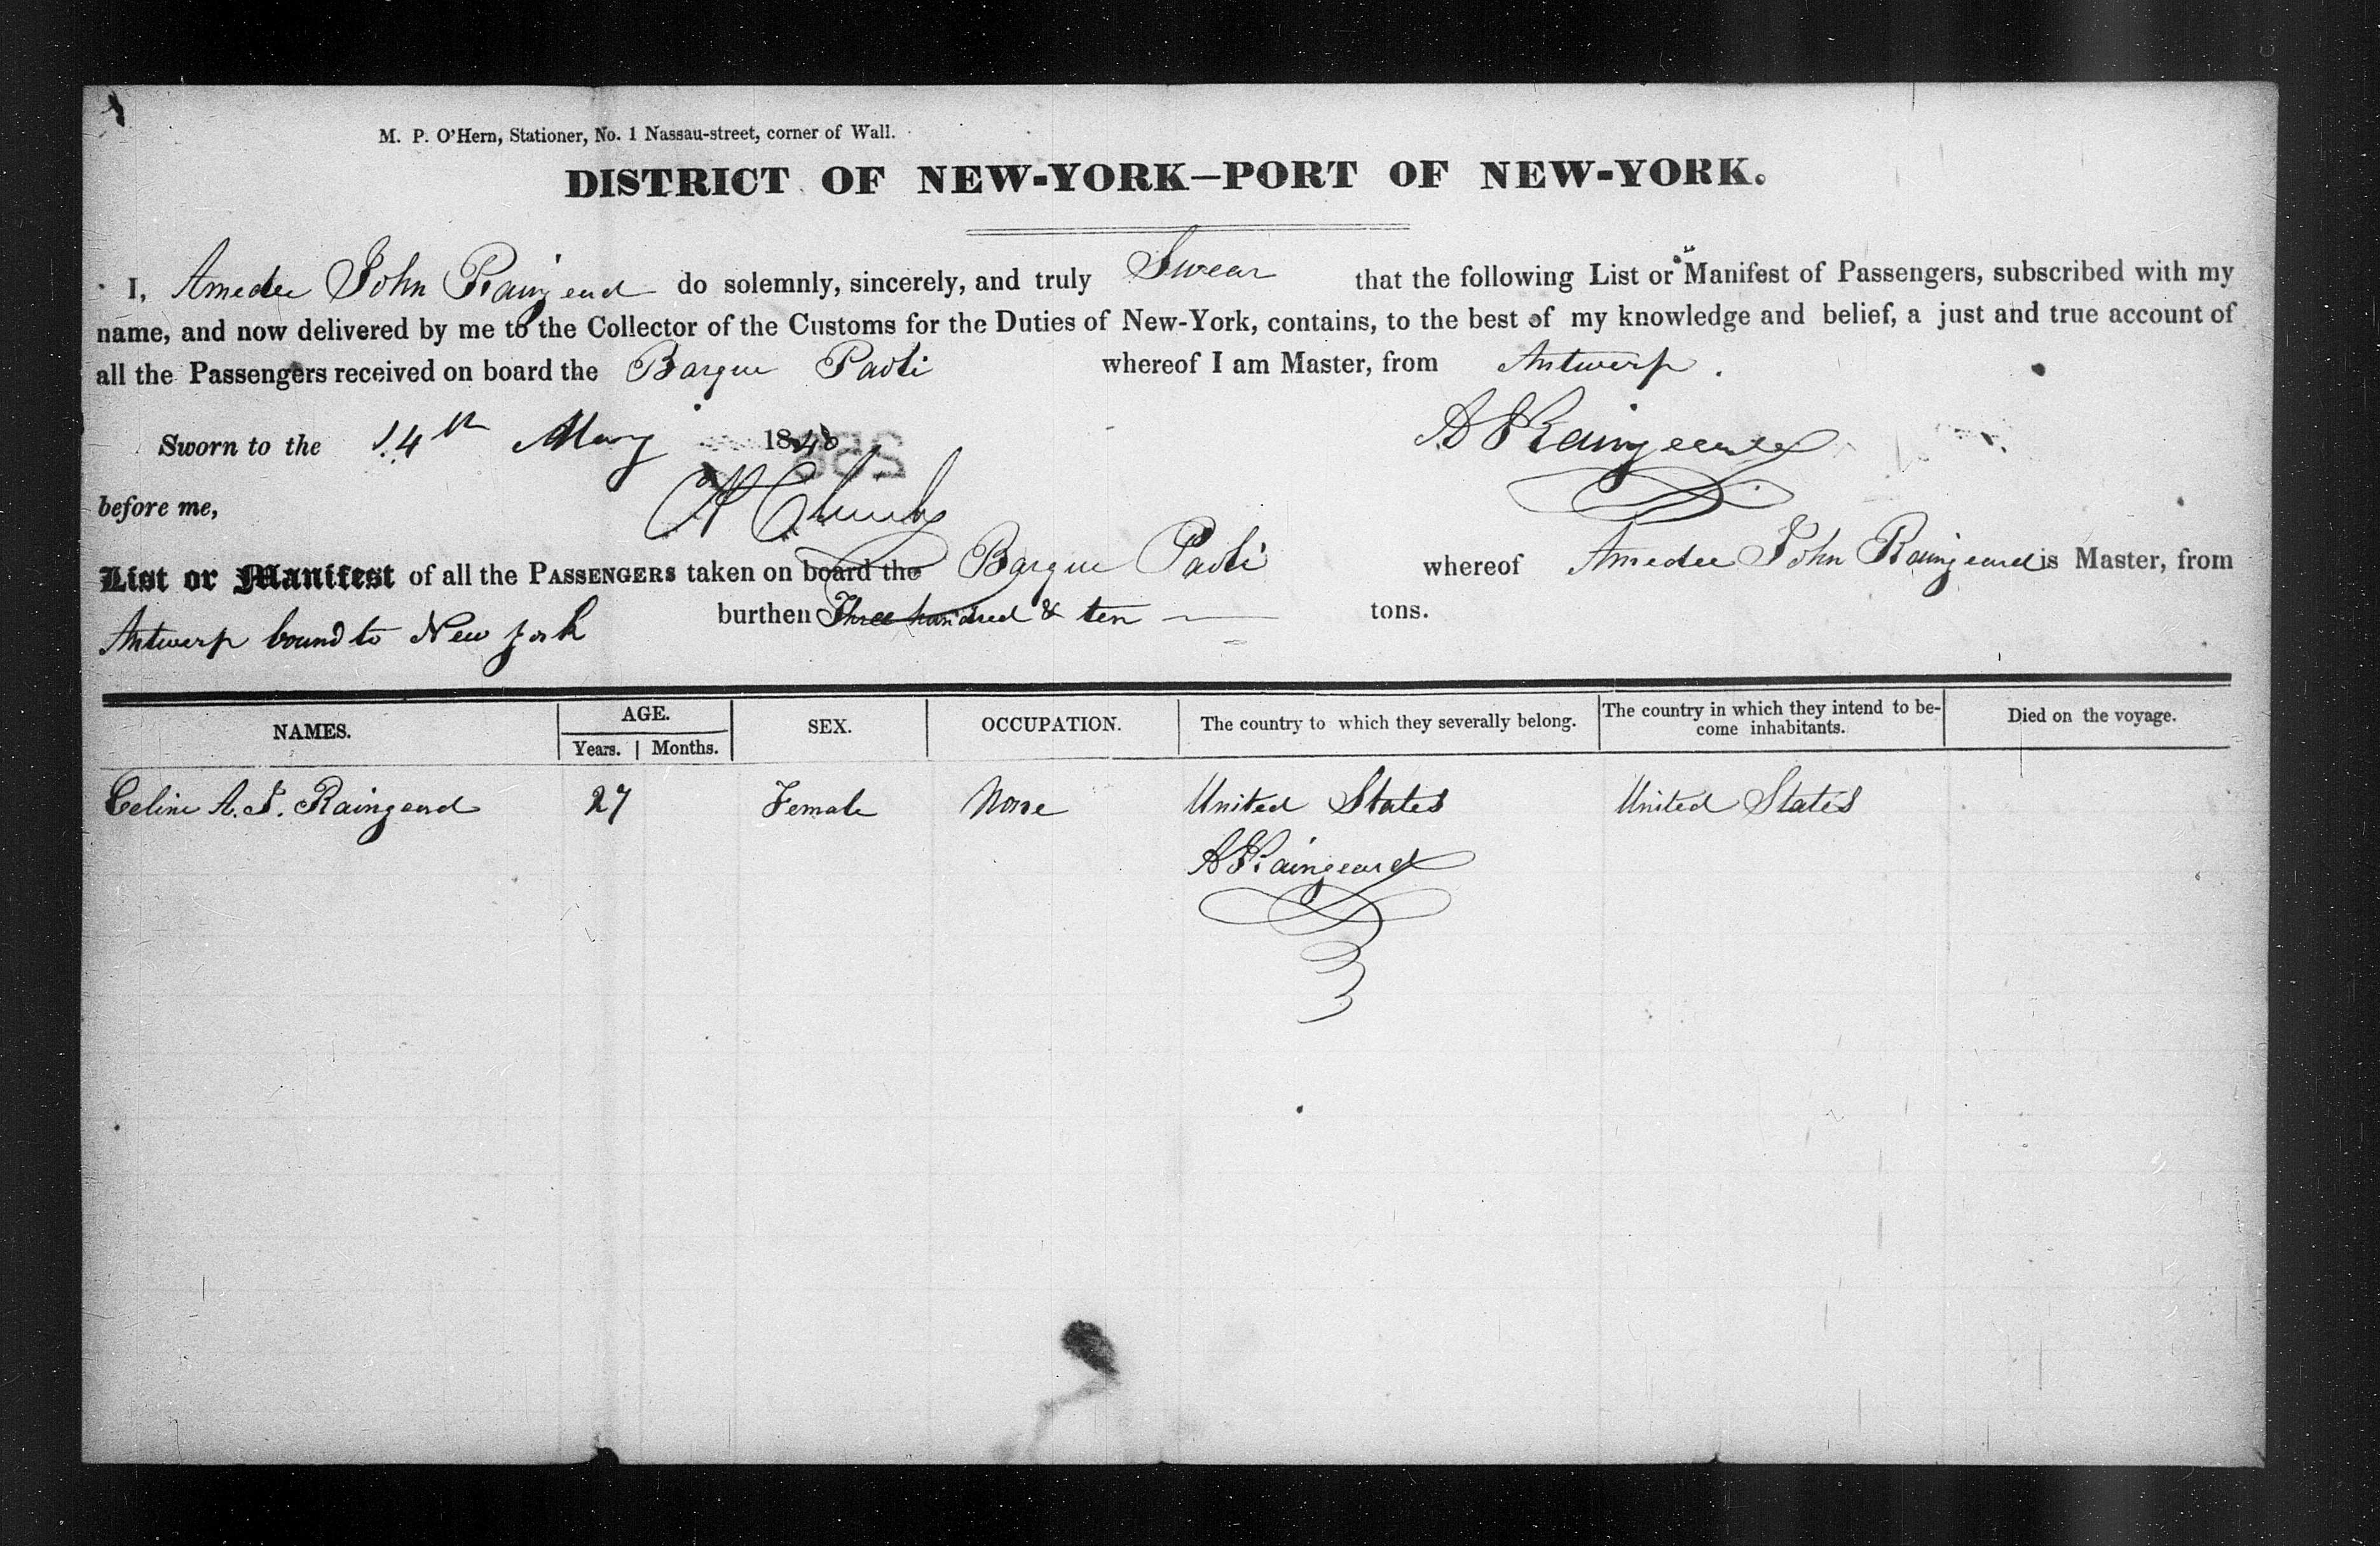 M. P. O'Hern, Stationer, No. 1 Nassau-street, corner of Wall.
DISTRICT OF NEW-YORK—PORT OF NEW-YORK.
I, Amedee John Raingeard do solemnly, sincerely, and truly Swear that the following List or Manifest of Passengers, subscribed with my
name, and now delivered by me to the Collector of the Customs for the Duties of New-York, contains, to the best of my knowledge and belief, a just and true account of
all the Passengers received on board the Barque Paoli whereof I am Master, from Antwerp.
Sworn to the 14th May 1840 A J Raingeard
before me,
List or Manifest of all the PASSENGERS taken on board the Barque Paoli whereof Amedee John Raingeard is Master, from
Antwerp bound to New York burthen Three hundred & ten tons.
NAMES. AGE. Years. Months. SEX. OCCUPATION. The country to which they severally belong. The country in which they intend to be-
come inhabitants. Died on the voyage.
Celine A. J. Raingeard 27 Female None United States United States
A J Raingeard